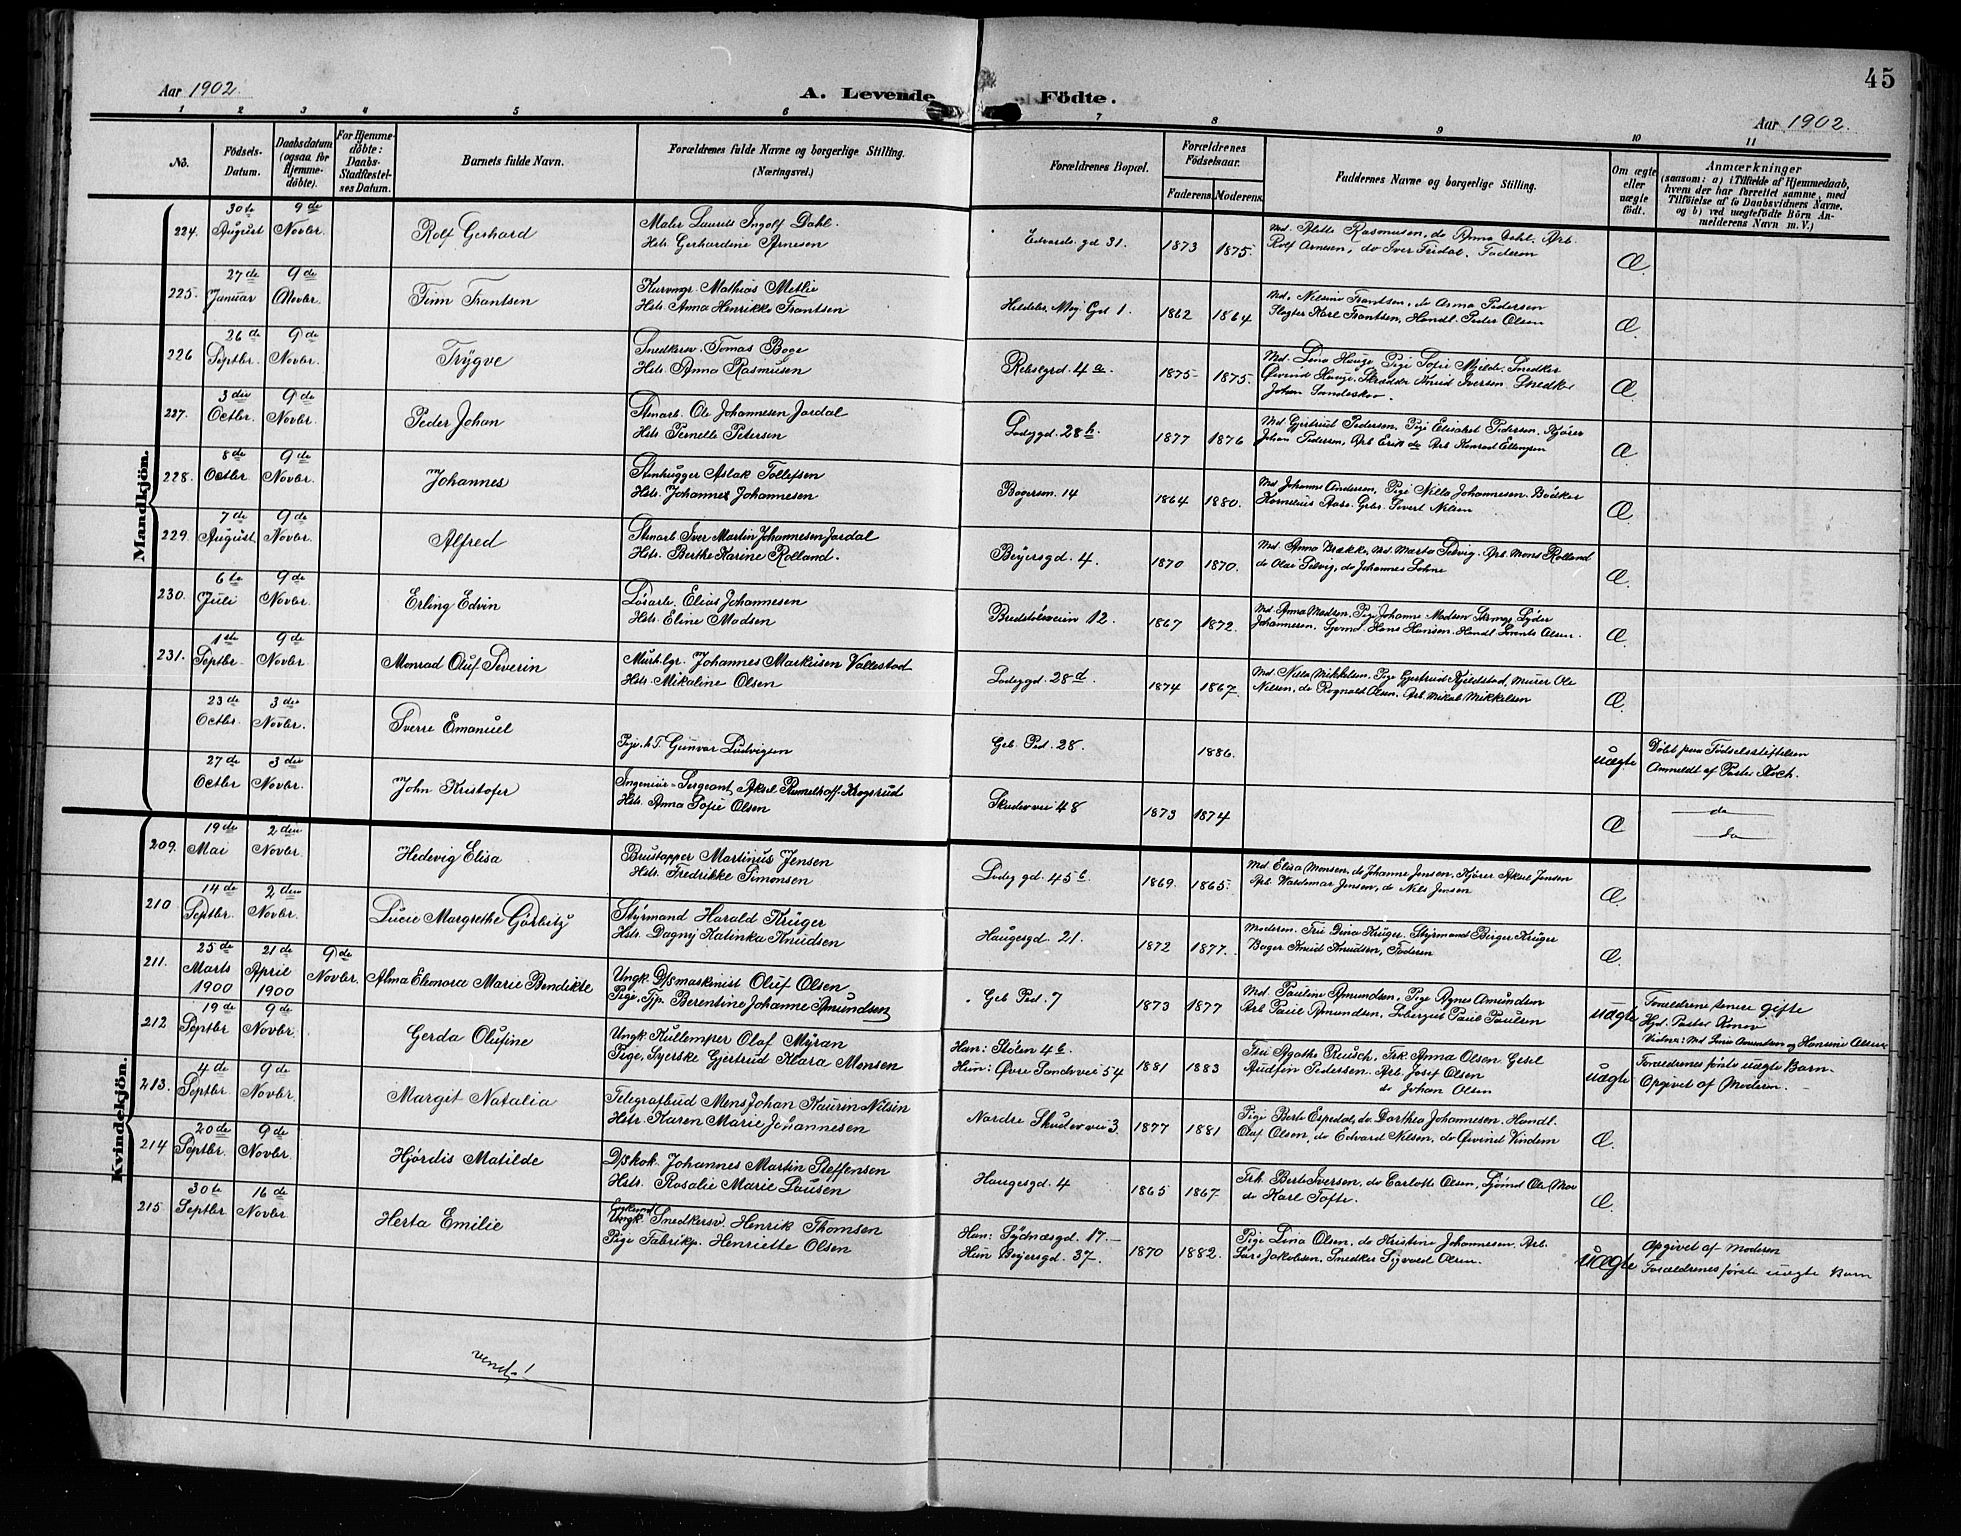 45
Aar 1902.
A. Levende Födte.
Aar 1902.
1 2 3 4 5 6 7 8 9 10 11
No.
Födsels-Datum.
Daabsdatum (ogsaa for Hjemme-döbte).
For Hjemme-döbte: Daabs-Stadfæstel-ses Datum.
Barnets fulde Navn.
Forældrenes fulde Navne og borgerlige Stilling. (Næringsvei.)
Forældrenes Bopæl.
Forældrenes Födselsaar.
Faderens. Moderens.
Faddernes Navne og borgerlige Stilling.
Om ægte eller uægte födt.
Anmærkninger
(saasom: a) i Tilfælde af Hjemmedaab,
hvem der har forrettet samme, med
Tilföielse af to Daabsvidners Navne.
og b) ved uægtefödte Börn An-
melderens Navn m. V.)
Mandkjön.
224. 30te August 9de Novbr. Rolf Gerhard
Maler Laurits Ingolf Dahl.
Hstr. Gerhardine Arnesen
Edvards. gd 31. 1873 1875.
Md. Alette Rasmusen, do Anna Dahl. Arb.
Rolf Arnesen, do Iver Feidal. Faderen
Æ
225. 27de Januar 9de Novbr. Finn Frantsen
Kurvmgr. Mathias Metlie
Hstr. Anna Henrikke Frantsen
Hildebr. Mej. Gd 1. 1862 1864
Md. Nilsine Frantsen, do Anna Pedersen
Slagter Karl Frantsen, Handl. Peder Olsen
Æ
226 26de Septbr. 9de Novbr. Trygve
Snedkersv. Tomas Boge
Hstr. Anna Rasmusen
Rebslgrd. 4a. 1875- 1875.
Md. Lena Hauge, Pige Sofie Mjelde, Snedker
Øivind Hauge, Skrædder Knud Iversen. Snedker
Johan Sandeskov.
Æ
227. 3die Octbr. 9de Novbr. Peder Johan
Stenarb. Ole Johannesen Jardal
Hstr. Pernelle Petersen
Lodgjgd. 28b. 1877 1876
Md Gjertrud Pedersen, Pige Elisabet Pedersen. Kjører
Johan Pedersen, Arb Erik do Arb Konrad Ellingsen
Æ
228. 8de Octbr 9de Novbr. Johannes
Stenhugger Aslak Tollefsen
Hstr. Johanne Johannesen
Bøgersm. 14 1864 1880.
Md Johanne Andersen, Pige Nilla Johannesen. Bødker
Kornelius Aase. Grbr. Sivert Nilsen
Æ.
229. 7de August 9de Novbr. Alfred
Stenarb Iver Martin Johannesen Jardal
Hstr. Berthe Karine Rolland.
Beyersgd. 4. 1870 1870.
Md. Anna Brække, Md. Marta Selvig. Arb. Mons Rolland
do Olai Selvig, do Johannes Lohne
Æ.
230. 6te Juli 9de Novbr. Erling Edvin
Løsarb. Elias Johannesen
Hstr. Eline Madsen
Bredstølsveien 12. 1867 1872.
Md. Anna Madsen, Pige Johanne Madsen Skrmgr Lyder
Johannesen, Gjvmd. Hans Hansen. Handl. Lorents Olsen.
Æ
231. 1ste Septbr. 9de Novbr. Monrad Oluf Severin
Murh.lgr. Johannes Markusen Vallestad
Hstr. Mikaline Olsen
Lodgjgd. 28d. 1874 1867.
Md. Nilla Mikkelsen, Pige Gjertrud Kjellstad, murer Ole
Nilsen, do Rognald Olsen. Arb. Mikal Mikkelsen
Æ.
23de Octbr. 3die Novbr. Sverre Emanuel
Pige. h.T. Gunvar Ludvigsen
Geb. Ped. 28. 1886. uægte
Døbt paa Fødselsstiftelsen
Anmeldt af Pastor Koch.
27de Octbr 3die Novbr. John Kristofer
Ingeniør-Sergeant Aksel Rumelhoff-Krogsrud
Hstr. Anna Sofie Olsen
Skudevvei 48 1873 1874 Æ
do
do
Kvindekjön.
209. 19de Mai 2den Novbr. Hedevig Elisa
Brustapper Martinus Jensen
Hstr. Fredrikke Simonsen
Lodgj gd. 45b 1869. 1865.
Md. Elisa Monsen, do Johanne Jensen. Kjører Aksel Jensen
Arb. Waldemar Jensen, do Nils Jensen
Æ.
210. 14de Septbr. 2den Novbr. Lucie Margrethe Görbitz
Styrmand Harald Krüger
Hstr. Dagny Katinka Knudsen
Haugesgd. 21. 1872 1877.
Moderen. Fru Dina Krüger. Styrmand Birger Krüger
Bager Knud Knudsen, Faderen
Æ.
211. 25de Marts 1900 21de April 1900 9de Novbr. Alma Elenora Marie Bendikte
Ungk. D/Smaskinist Oluf Olsen
Pige, Tjp. Berentine Johanne Amundsen
Geb Ped. 7 1873 1877
Md. Pauline Amundsen, Pige Agnes Amundsen
Arb Paul Amundsen, Lobergut Paul Paulsen
uægte
Forældrene senere gifte
Hjd. Pastor Konow
Vidner: Md Lovise Amundsen og Hansine Olsen
212 19de Septbr 9de Novbr. Gerda Olufine
Ungk. Kullemper Olaf Myran
Pige, Syerske Gjertrud Klara Monsen
Han: Stølen 4b.
Hun: Øvre Sandsvei 54 1881 1883
Fru Agathe Reusch, Frk. Anna Olsen Gesel
Audfin Pedersen. Arb. Josef Olsen
do Johan Olsen
uægte
Forældrenes første uægte Barn.
Opgivet af Moderen.
213. 4de Septbr. 9de Novbr. Margit Natalia
Telegrafbud Mons Johan Kaurin Nilsen
Hstr. Karen Marie Johannesen
Nordre Skudevvei 3. 1877 1881
Pige Berte Espedal, do. Dorthea Johannesen. Handl.
Oluf Olsen, do Edvard Nilsen, do Øivind Vindem
Æ.
214 20de Septbr. 9de Novbr. Hjørdis Matilde
D/Skok. Johannes Martin Steffensen
Hstr. Rosalie Marie Lausen
Haugesgd. 4 1865 1867
Frk. Berte Iversen, do Carlotte Olsen, Sjømd Ole Moe
do Karl Tofte.
Æ.
215. 30te Septbr 16de Novbr. Herta Emilie
Enkemd
Ungk. Snedkersv. Henrik Thomsen
Pige Fabrikp. Henriette Olsen
Han: Sydnæsgd. 17.
Hun Beyersgd. 37. 1870 1882.
Pige Lina Olsen, do Kristine Johannesen. Arb.
Lars Jakobsen, Snedker Sigvald Olsen.
uægte
Opgivet af Moderen
Forældrenes første uægte Barn
vend!